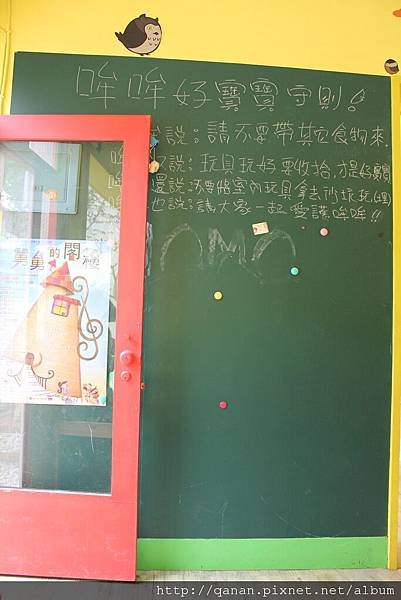 哞哞好寶寶守則!
說:請不要帶其它食物來.
哞 說:玩具玩好要收拾,才是好寶寶
哞 還說:不要將室內玩具拿去沙坑玩(裡)
也說:請大家一起愛護哞哞!!
OMO
舅舅的閣樓
http://qanan.pixnet.net/album